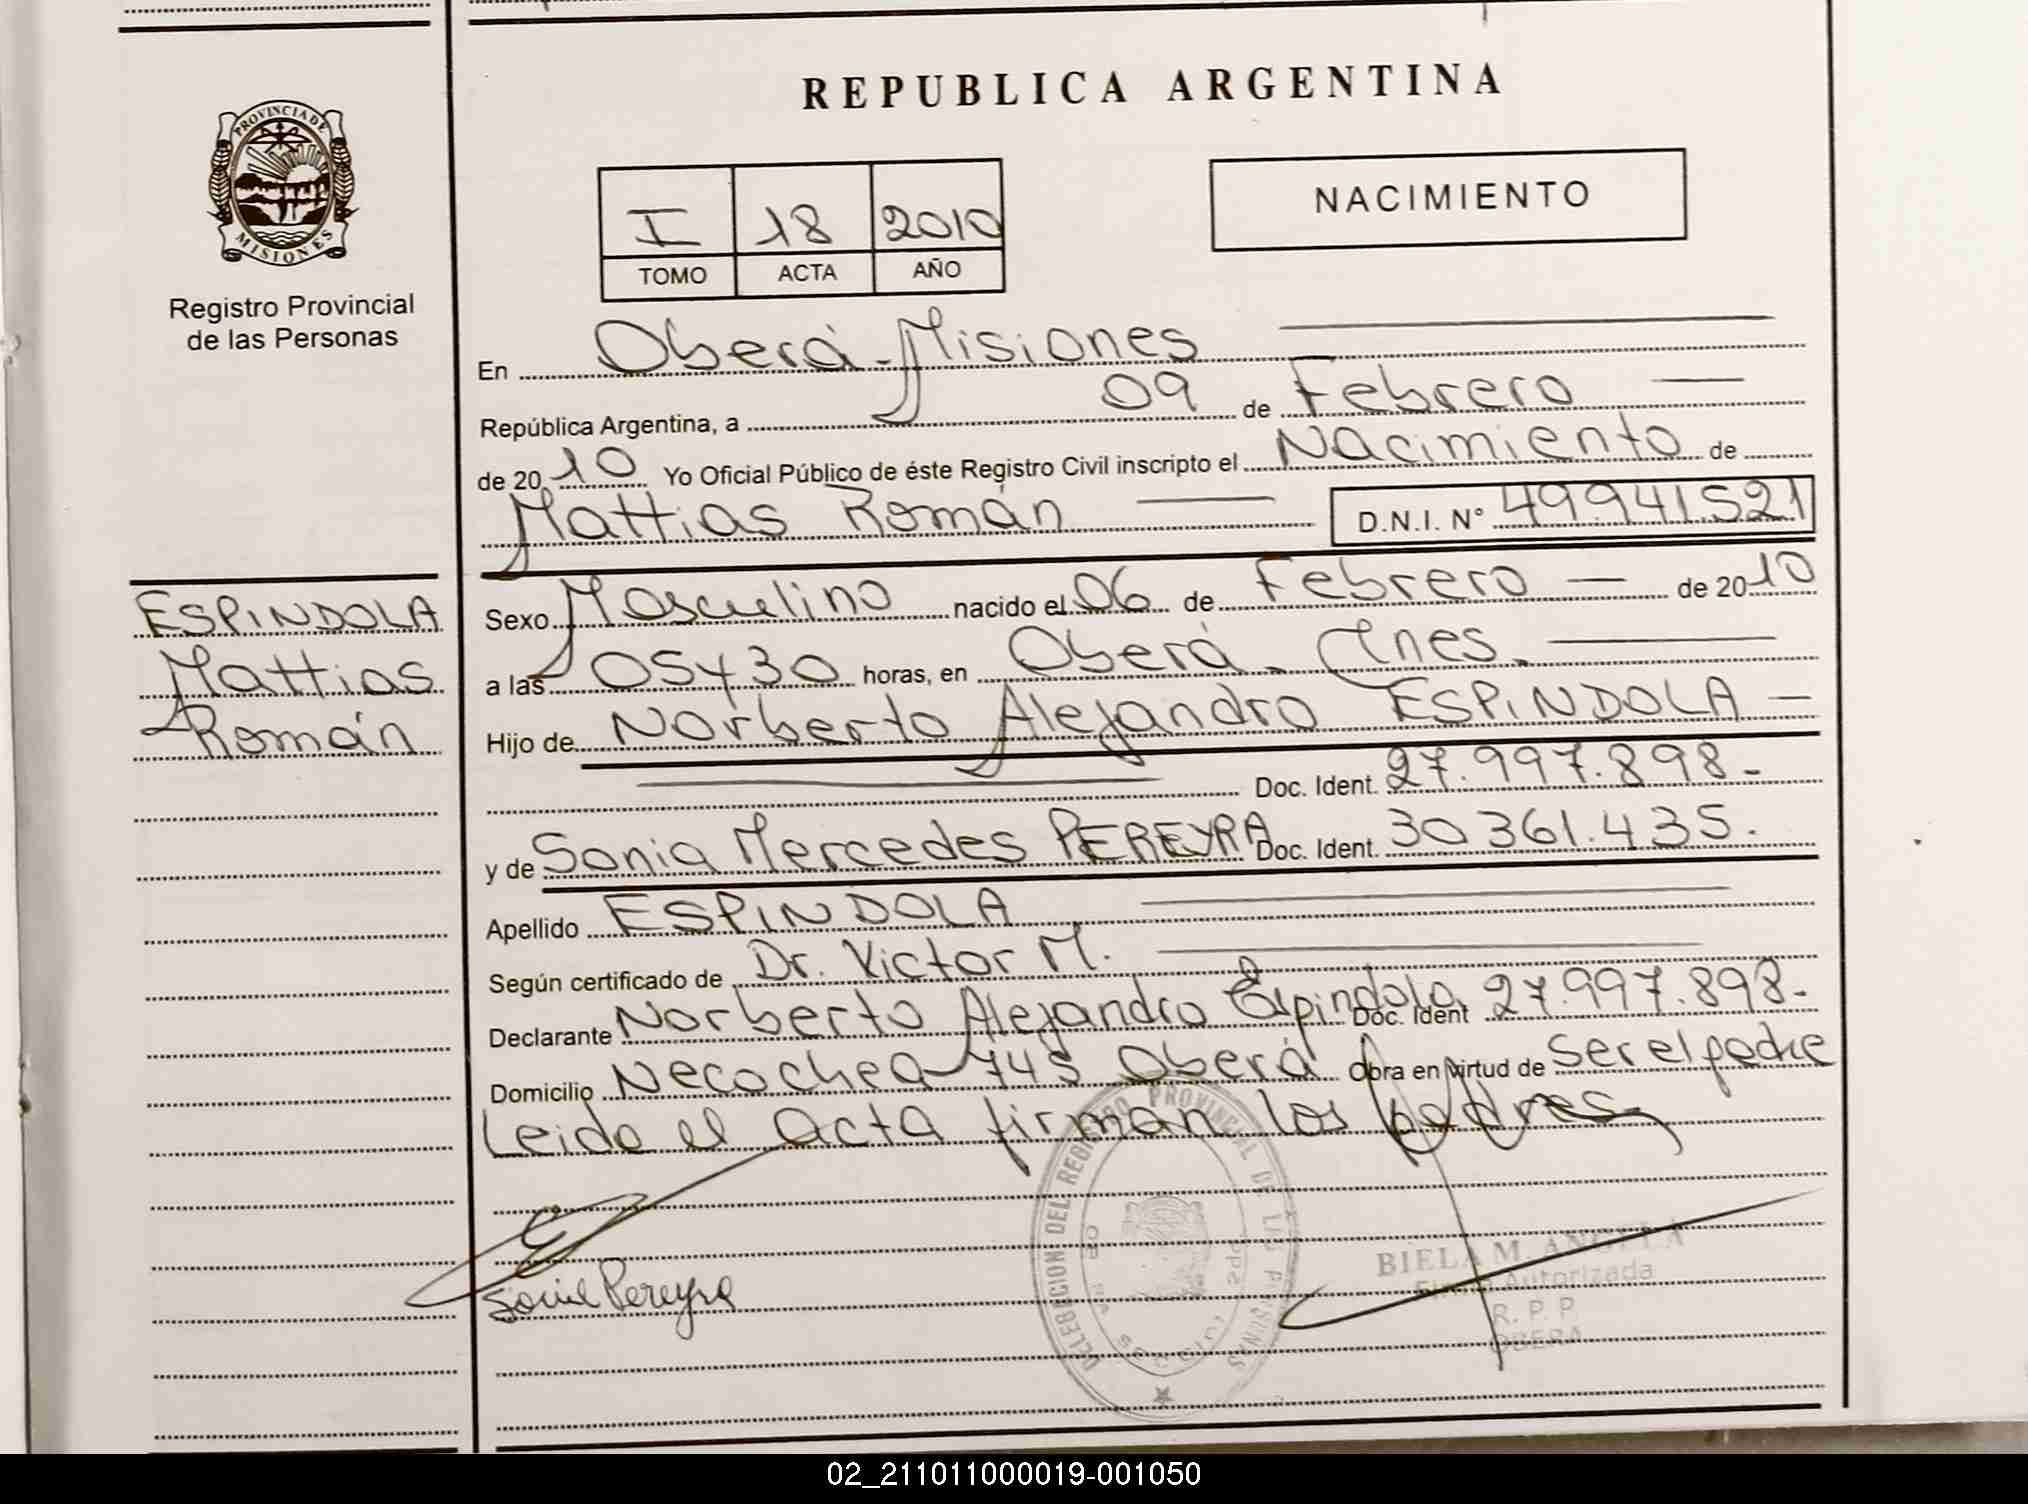 REPUBLICA ARGENTINA
PROVINCIA DE
MISIONES
Registro Provincial
de las Personas
I 18 2010
TOMO ACTA AÑO
NACIMIENTO
En Oberá - Misiones
República Argentina, a 09 de Febrero
de 2010 Yo Oficial Público de éste Registro Civil inscripto el Nacimiento de
Mattias Román D.N.I. N° 49941521
ESPINDOLA
Mattias
Román
Sexo Masculino nacido el 06 de Febrero de 2010
a las 05y30 horas, en Oberá.
Hijo de Norberto Alejandro ESPINDOLA
Doc. Ident. 27.997.898.
y de Sonia Mercedes PEREYRA Doc. Ident. 30361.435.
Apellido ESPINDOLA
Según certificado de Dr. Victor M.
Declarante Norberto Alejandro Espindola Doc. Ident 27.997.898.
Domicilio Necochea 745 Oberá Obra en virtud de ser el padre
Leida el acta firman los padres
Pereyra
DEL REGISTRO PROVINCIAL DE LAS PERSONAS
BIELA M. ANGELA
Firma Autorizada
R. P. P
OBERA
02_211011000019-001050